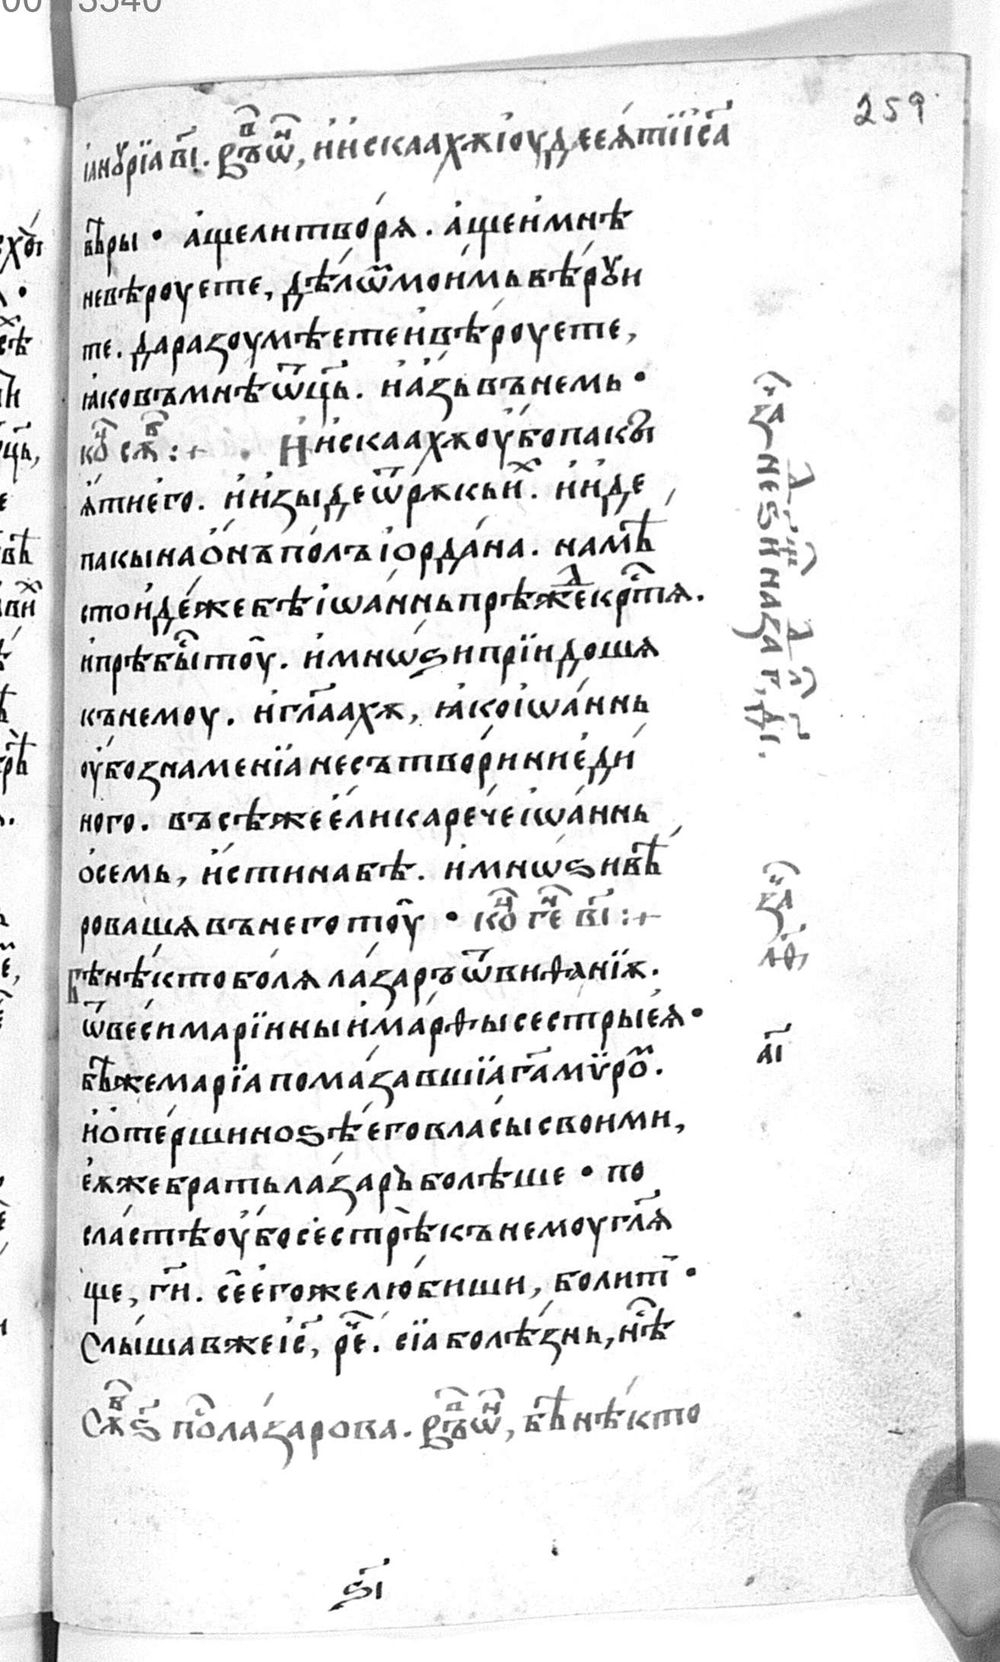 259
іанꙋрїа в҃і. рⷡ҇ъ ѡ҆ⷩ҇, и҆ искаахѫ іоудее ꙗ҆ти і҆с҃а
вѣ́ры · а҆ще ли творѧ̀. а҆ще и҆ мнѣ
не вѣроуете, дѣлѡⷨ моимь вѣ́рꙋи
те. да разоумѣете и҆ вѣ́роуете,
ꙗ҆ко въ мнѣ ѿц҃ь. и҆ а҆зь въ немь ·
коⷰ҇ сѫⷡ҇ :+ · И҆ искаахѫ оу҆бо пакы
ꙗ҆ти его. и҆ и҆зыде ѿ рѫкь иⷯ. и҆ и҆де
пакы на о҆нъ полъ іордана. на мѣ
сто и҆де́же бѣ іѡа́ннь прѣжⷣе крⷭ҇тѧ.
и҆ прѣбыⷭ҇ тоу. и҆ мнѡѕи прїидошѧ
къ немоу. и҆ гл҃аахѫ, ꙗ҆ко іѡа́ннь
оу҆бо знаменїа не сътвори ни еди
ного. въсѣ же е҆лика рече іѡа́ннь
о҆ семь, и҆стина бѣ. и҆ мнѡѕи вѣ
ровашѧ въ него тоу · коⷰ҇ гⷩ҇е в҃і :+
Бѣ нѣкто болѧ лазаръ ѿ виѳанїѫ.
ѿ веси марїины и҆ марѳы сестры еѧ ·
бѣ же марїа помазавшїа г҃а мѵ̈роⷨ.
и҆ о҆тершїи ноѕѣ его власы своими,
еѫже брать лазаръ болѣше · по
сластѣ оу҆бо сестрѣ къ немоу гл҃ѧ
ще, г҃и. се егоже любиши, болиⷮ ·
Слышав же і҆с҃, реⷱ҇. сїа болѣзнь, нⷭ҇ѣ
сѫⷡ҇ ѕ҃ поⷭ҇ лазарова. рⷡ҇ъ ѡ҆ⷩ҇, бѣ нѣкто
ѕ҃і
а҃і